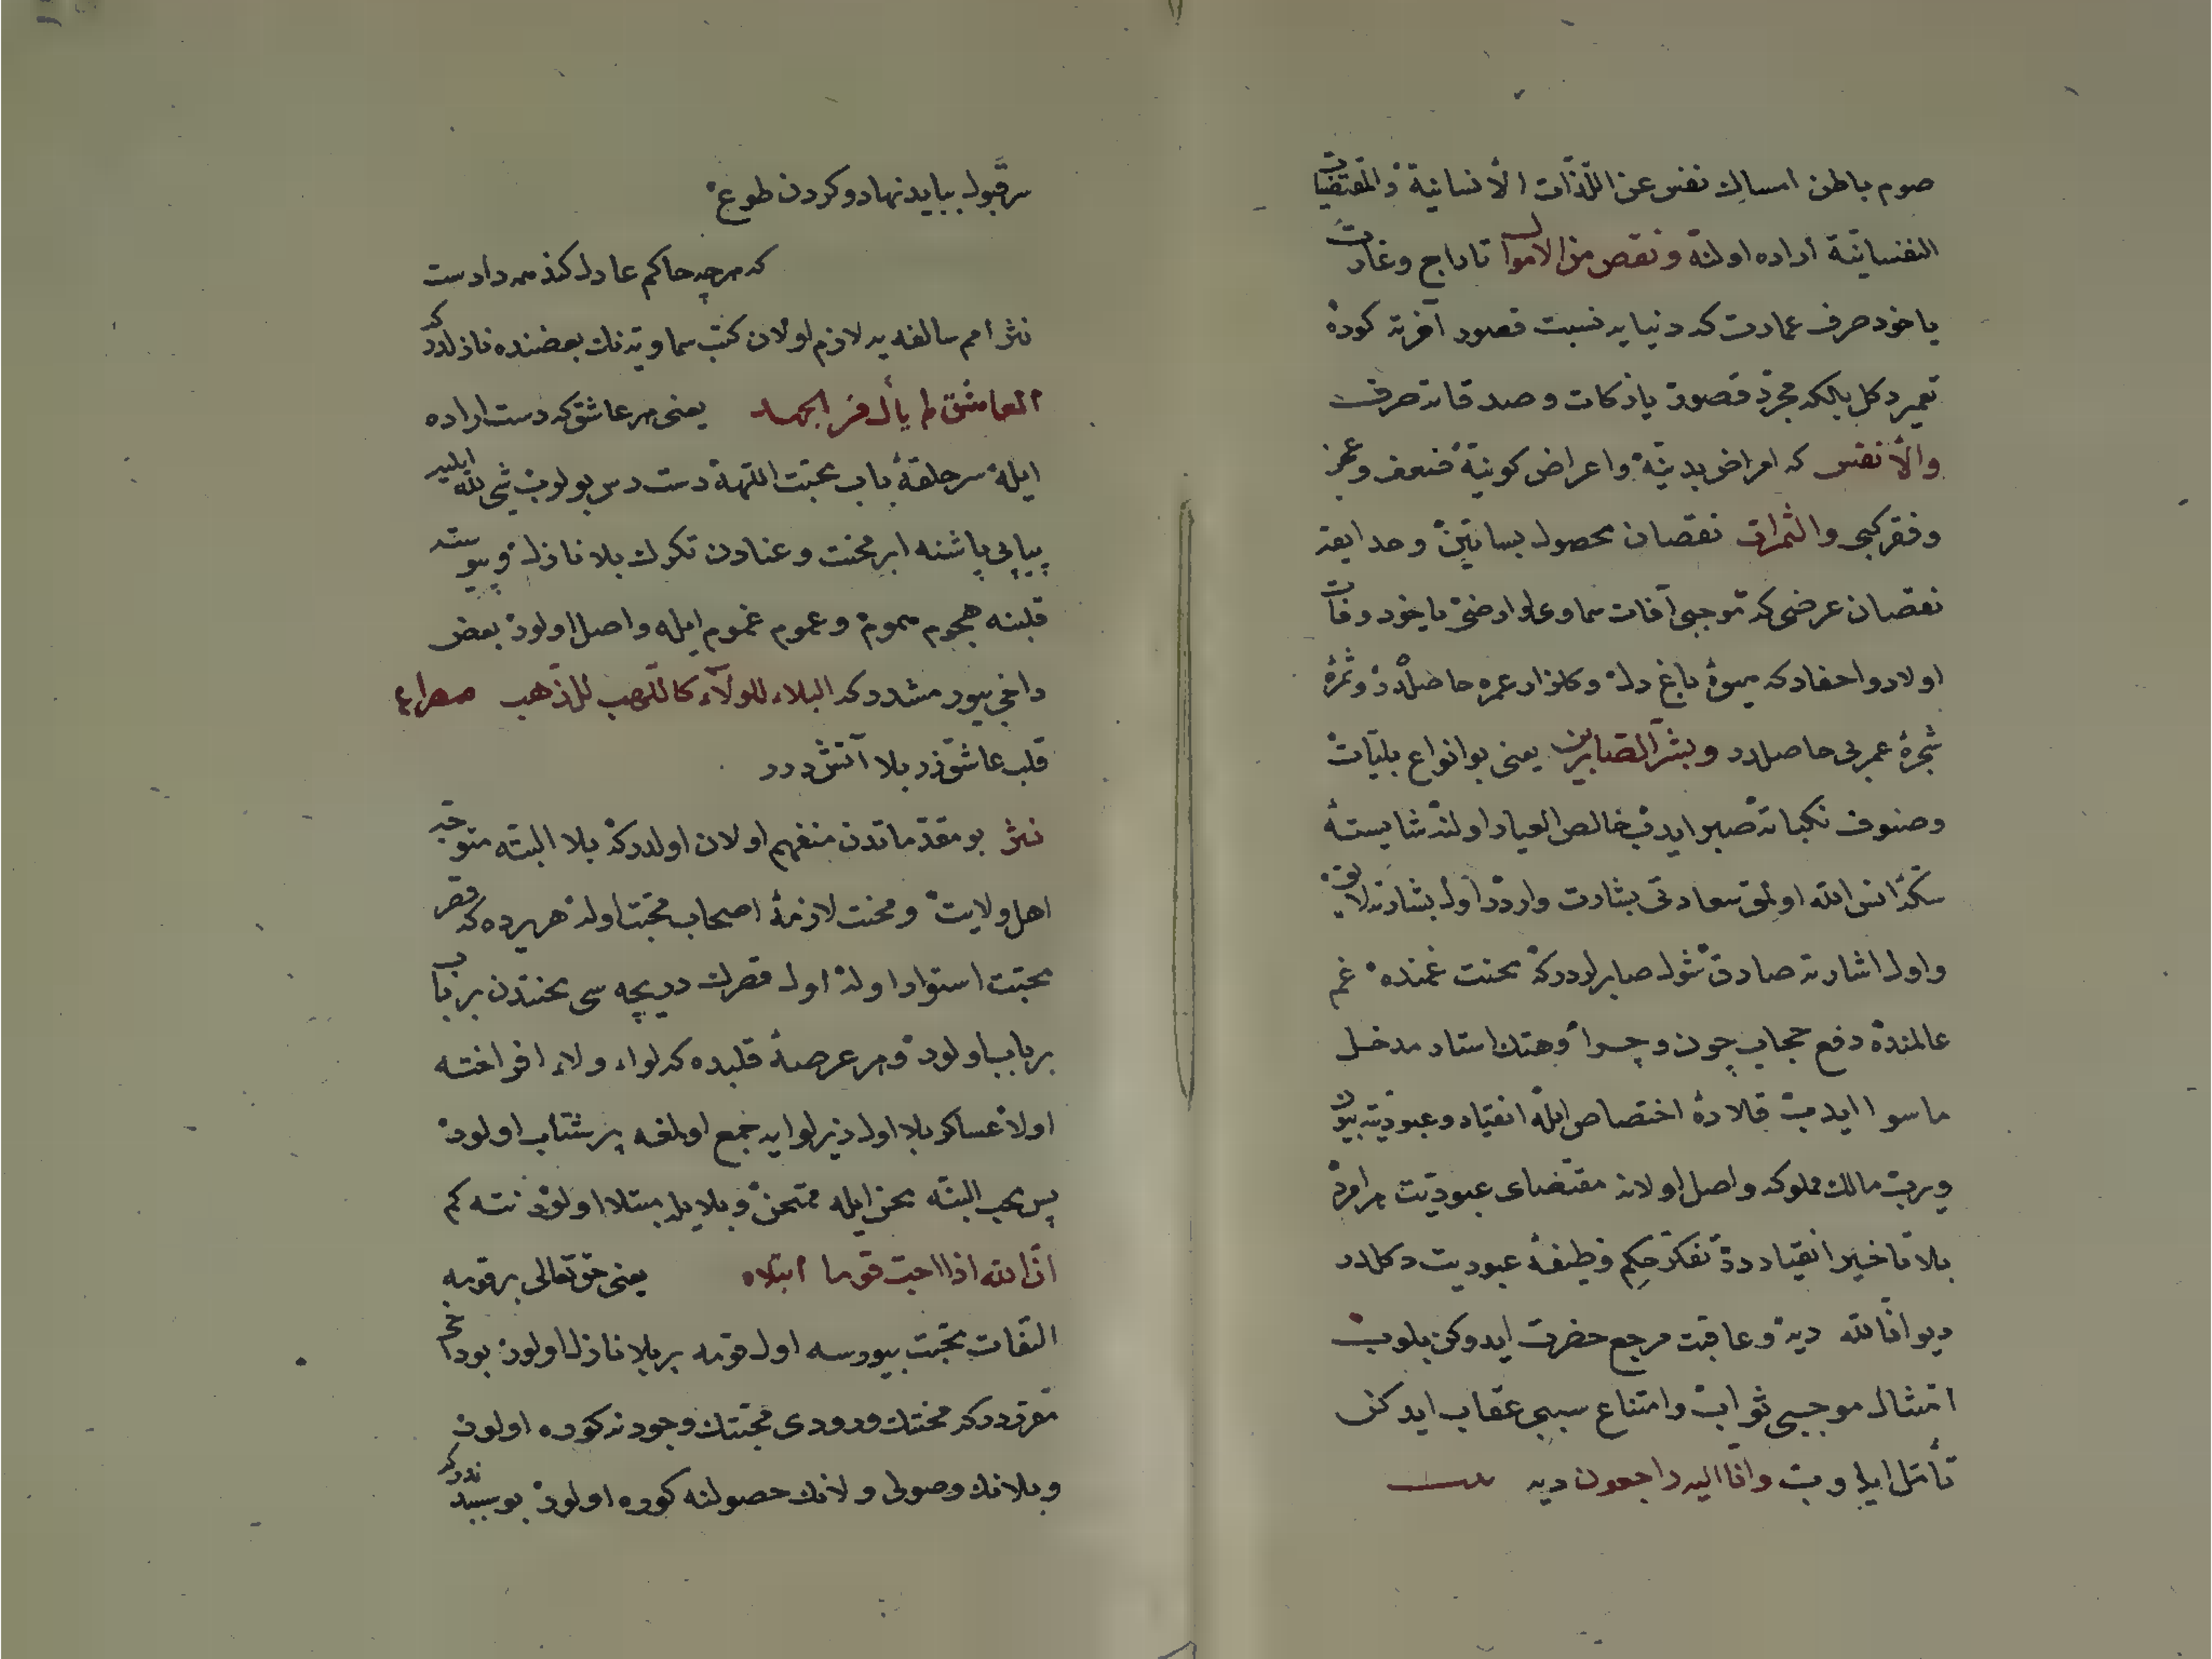 صوم باطن امساك نفس عن اللذات الأنسانية والمقتضيات
النفسانية اراده اولنه ونقص من الاموال تاراج وغارت
ياخود صرف عمارت كه دنيايه نسبت قصور آخرته كوره
تعمير دكل بلكه مجرد قصور يا زكات وصدقاته صرف
والأنفس كه امراض بدنية واعراض كونية ضعف وعجز
وفقر كبى والثمرات نقصان محصول بساتين وحدايقه
نقصان عرضى كه موجبى آفات سماوى وارضى ياخود وفات
اولاد واحفاد كه ميوۀ باغ دل وكلزار عمره حاصلدر وثمرۀ
شجرۀ عمربى حاصلدر وبشر الصابرين يعنى بو انواع بليات
وصنوف نكباته صبر ايدوب خالص العيار اولنه شايستۀ
اولمق سعادتى بشارت وارددر اول بشارته لايق
واول اشارته صادق شول صابرلردركه محنت غمنده غم
عالمنده دفع حجاب چون وچرا وهتك استار مدخل
ماسوا ايدوب قلادۀ اختصاص ايله انقياد وعبوديته بيون
ويروب مالك مملوكه واصل اولانه مقتضاى عبوديت هر امرده
بلا تاخير انقياددر تفكر حكم وظيفۀ عبوديت دكلدر
ديو انا لله ديه وعاقبت مرجع حضرت ايدوكن بلوب
امتثال موجبى ثواب وامتناع سببى عقاب ايدكن
تأمل ايليوب وانا اليه راجعون ديه بيت
سر قبول ببايد نهاد وكردن طوع
كه هرچه حاكم عادل كند همه دادست
نثر امم سالفه يه لازم اولان كتب سماويه نك بعضنده نازلدر كه
العاشق يعنى هر عاشق كه دست اراده
ايله سر حلقۀ باب محبت اللهه دست رس بولوب شئ لله ايليه
پياپى باشنه ابر محنت وعنادن تكرك بلا نازل وپيوسته
قلبنه هجوم هموم وعموم غموم ايله واصل اولور بعض
داخى بيورمشدر كه البلاء للولآء كاللهب للذهب مصراع
قلب عاشق زر بلا آتش در
نثر بو مقدماتدن منفهم اولان اولدركه بلا البته متوجه
اهل ولايت ومحنت لازمۀ اصحاب محبت اوله هر يرده كه قصر
محبت استوار اوله اول قصرك دريچه سى محنتدن بر باب
بر باب اولور وهر عرصۀ قلبده كه لواء ولاء افراخته
اولا عساكر بلا اول زير لوايه جمع اولمغه پر شتاب اولور
پس محب البته محن ايله ممتحن وبلايله مبتلا اولور نته كم
ان الله اذا احب قوما ابتلاه يعنى حق تعالى بر قومه
التفات محبت بيورسه اول قومه بر بلا نازل اولور بو داخى
مقرردر كه محنتك ورودى محبتك وجودنه كوره اولور
وبلانك وصولى ولانك حصولنه كوره اولور بو سببدندر كه